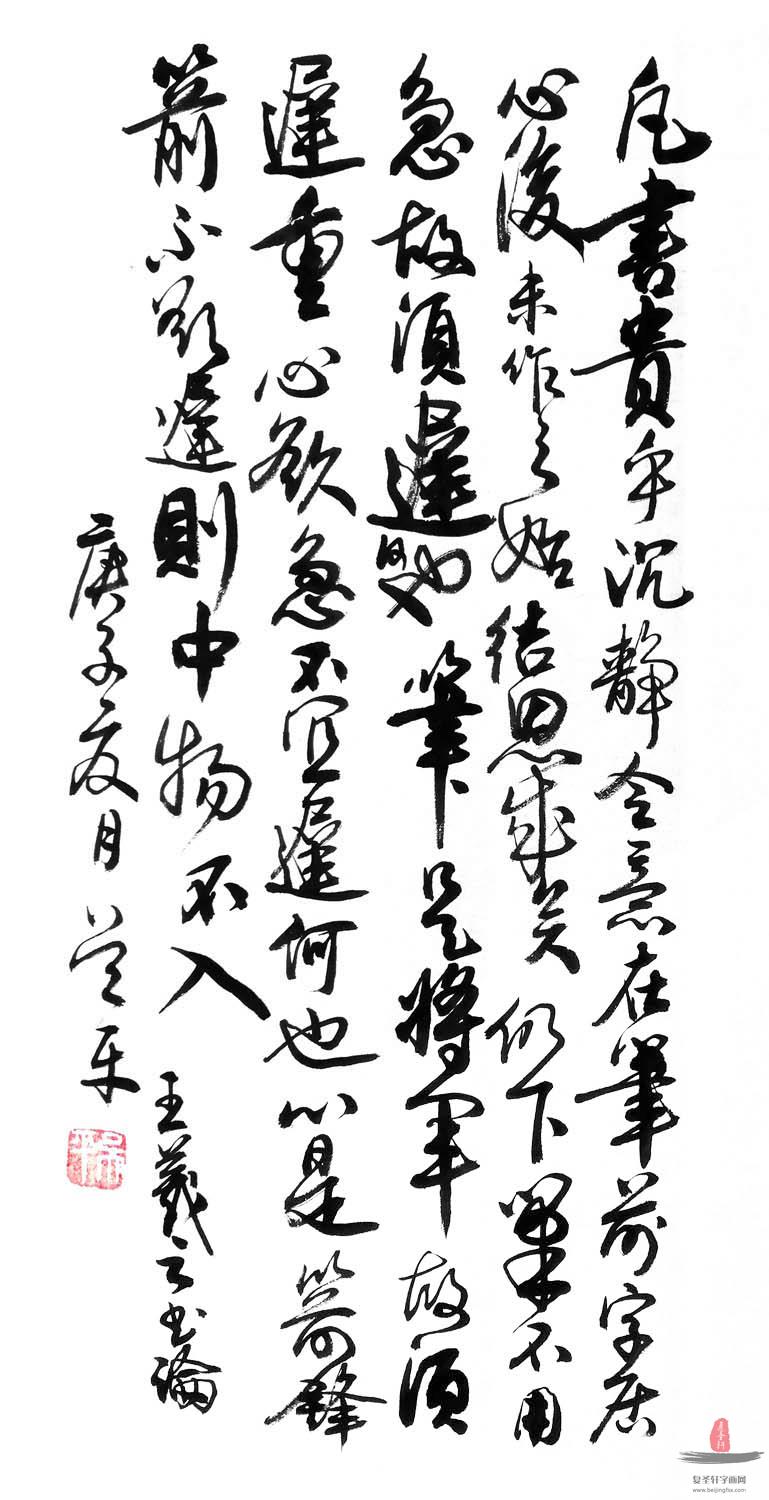 凡書貴乎沉靜令意在筆前字居
心後未作之始結思成矣仍下筆不用
急故須遲也筆是將軍故須
遲重心欲急不宜遲何也心是箭鋒
箭不欲遲則中物不入 王羲之書論
庚子夏月 吳平
复圣轩字画网
www.beijingfsx.com